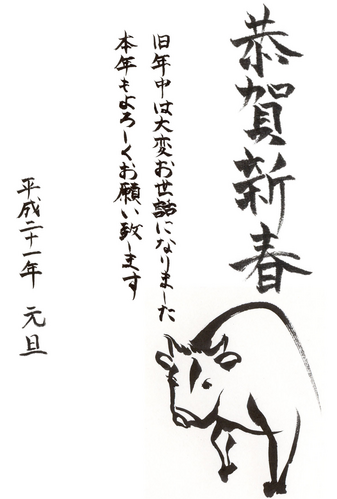 恭賀新春
旧年中は大変お世話になりました
本年もよろしくお願い致します
平成二十一年 元旦